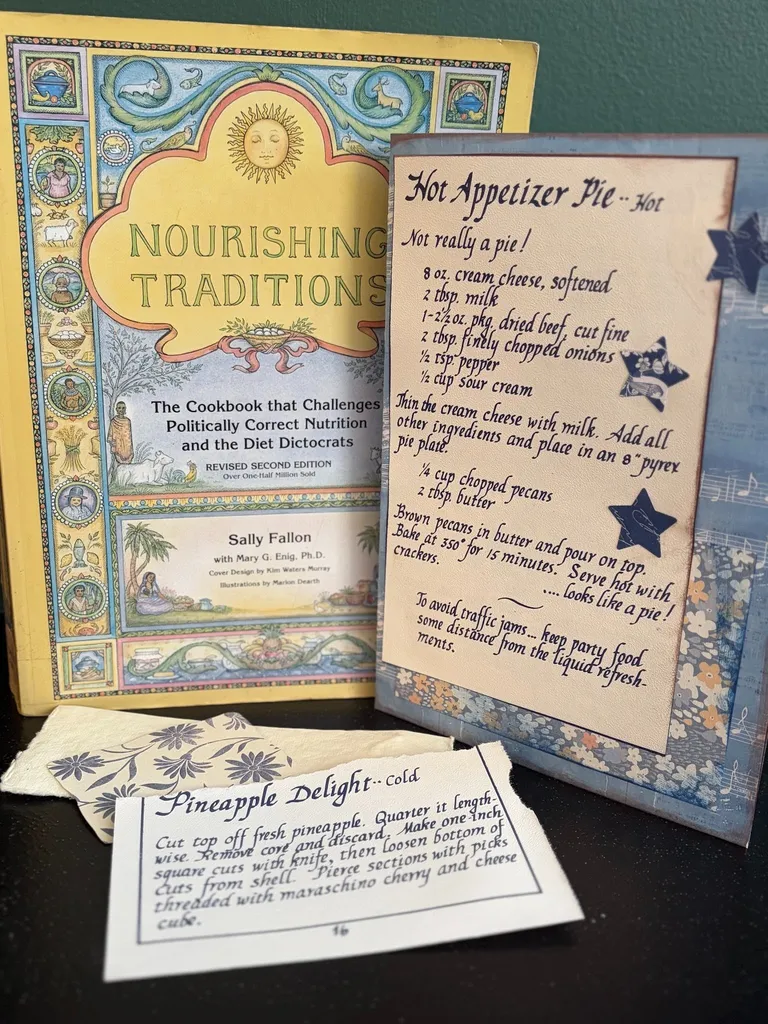 NOURISHING
TRADITIONS
The Cookbook that Challenges
Politically Correct Nutrition
and the Diet Dictocrats
REVISED SECOND EDITION
Over One-Half Million Sold
Sally Fallon
with Mary G. Enig, Ph.D.
Cover Design by Kim Waters Murray
Illustrations by Marion Dearth
Hot Appetizer Pie -- Hot
Not really a pie!
8 oz. cream cheese, softened
2 tbsp. milk
1-2½ oz. pkg. dried beef, cut fine
2 tbsp. finely chopped onions
½ tsp pepper
½ cup sour cream
Thin the cream cheese with milk. Add all
other ingredients and place in an 8" pyrex
pie plate.
¼ cup chopped pecans
2 tbsp. butter
Brown pecans in butter and pour on top.
Bake at 350° for 15 minutes. Serve hot with
crackers.
.... looks like a pie!
To avoid traffic jams... keep party food
some distance from the liquid refresh-
ments.
Pineapple Delight -- Cold
Cut top off fresh pineapple. Quarter it length-
wise. Remove core and discard. Make one-inch
square cuts with knife, then loosen bottom of
cuts from shell. Pierce sections with picks
threaded with maraschino cherry and cheese
cube.
16